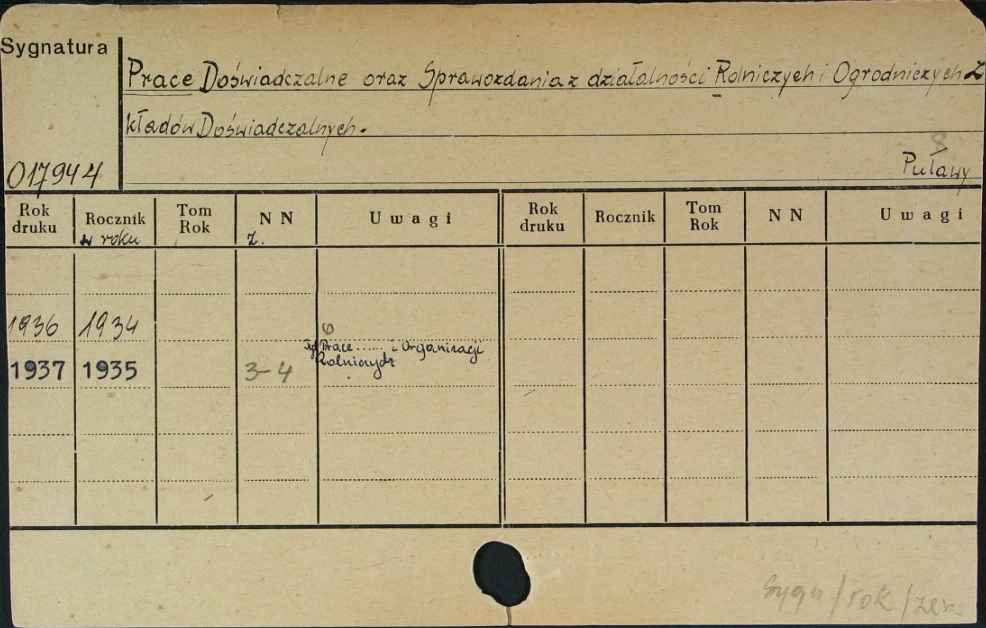 Sygnatura
Prace Doświadczalne oraz Sprawozdania z działalności Rolniczych i Ogrodniczych Za
kładów Doświadczalnych.
8
017944
Puławy
Rok druku Rocznik w roku Tom Rok NN z. Uwagi Rok druku Rocznik Tom Rok NN Uwagi
1936 1934
Prace...... i Organizacji
1937 1935 3-4 Rolniczych
Sygn/rok/zesz